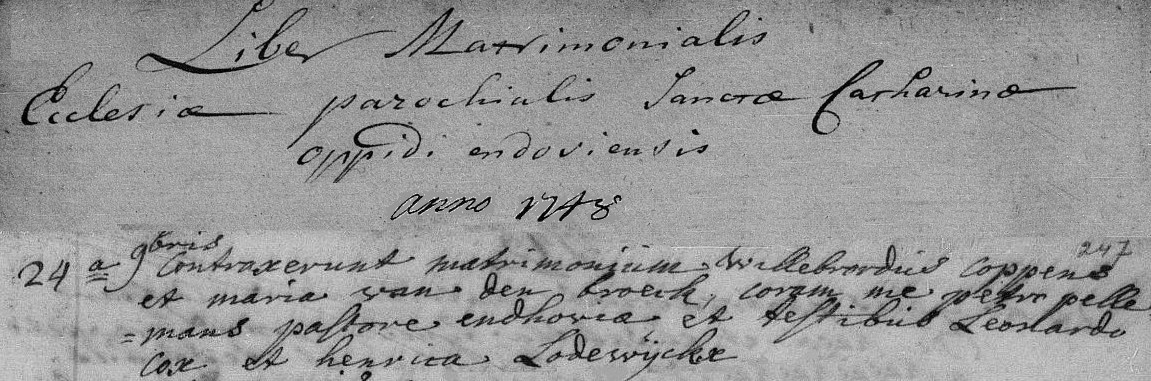 Liber Matrimonialis
Ecclesiæ parochialis Sanctæ Catharinæ
oppidi endoviensis
anno 1748
247
24 a 9bris contraxerunt matrimonium willebrordus coppens
et maria van den broeck, coram me petro pelle
=mans pastore endhoviæ et testibus Leonardo
Cox et henrica Lodewijckx